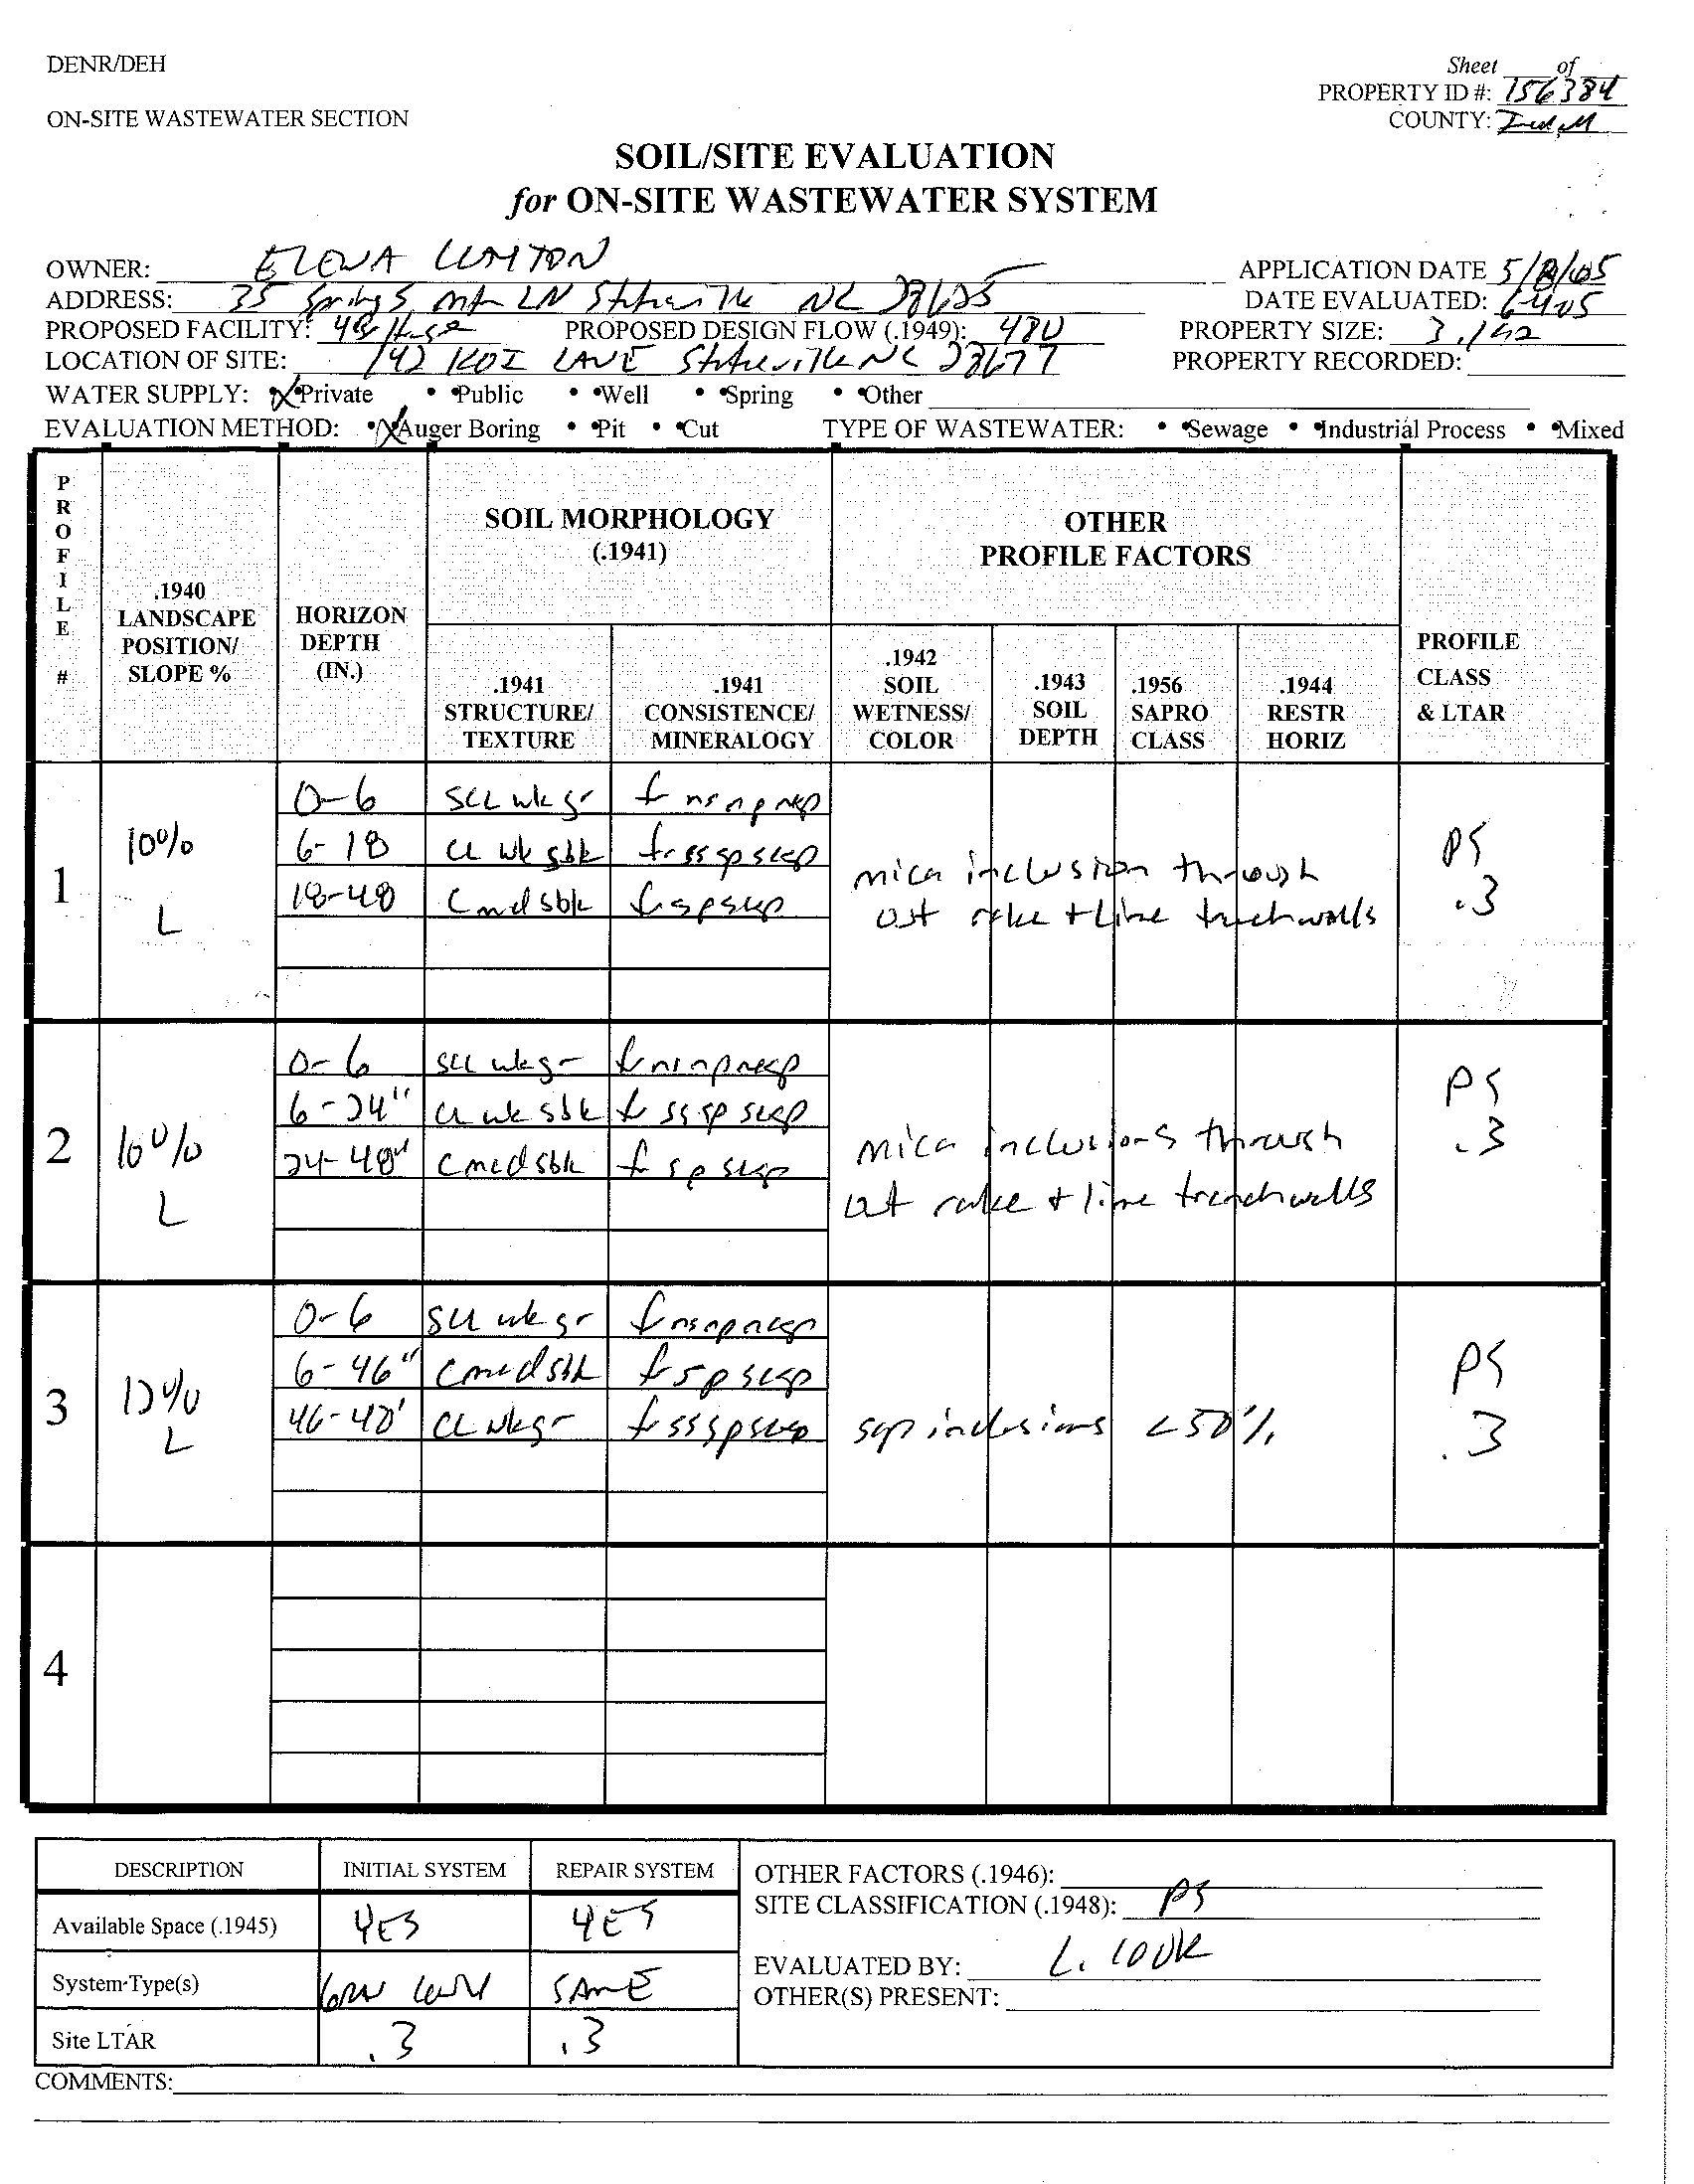 DENR/DEH
Sheet of
PROPERTY ID #: 156384
ON-SITE WASTEWATER SECTION
COUNTY:
SOIL/SITE EVALUATION
for ON-SITE WASTEWATER SYSTEM
OWNER: ELENA
APPLICATION DATE
ADDRESS: 35 Springs mtn LN Statesville NC 28625
DATE EVALUATED: 6-4-05
PROPOSED FACILITY: 4B House
PROPOSED DESIGN FLOW (.1949): 480
PROPERTY SIZE:
LOCATION OF SITE: 142 KOI LANE Statesville NC 28677
PROPERTY RECORDED:
WATER SUPPLY: X Private • Public • Well • Spring • Other
EVALUATION METHOD: X Auger Boring • Pit • Cut
TYPE OF WASTEWATER: • Sewage • Industrial Process • Mixed
PROFILE #
.1940 LANDSCAPE POSITION/ SLOPE %
HORIZON DEPTH (IN.)
SOIL MORPHOLOGY (.1941)
.1941 STRUCTURE/ TEXTURE
.1941 CONSISTENCE/ MINERALOGY
OTHER PROFILE FACTORS
.1942 SOIL WETNESS/ COLOR
.1943 SOIL DEPTH
.1956 SAPRO CLASS
.1944 RESTR HORIZ
PROFILE CLASS & LTAR
1
10%
L
0-6 SCL wk gr fr ns np nexp
6-18 CL wk sbk fr ss sp sexp
18-48 C med sbk fr s p sexp
mica inclusion through
out rake + lime trench walls
PS
.3
2
10%
L
0-6 SCL wk gr fr ns np nexp
6-24" CL wk sbk fr ss sp sexp
24-48" C med sbk fr s p sexp
mica inclusions through
out rake + lime trenchwalls
PS
.3
3
12%
L
0-6 SCL wk gr fr ns np nexp
6-46" C med sbk fr s p sexp
46-48" CL wk gr fr ss sp sexp
sap inclusions <50%
PS
.3
4
DESCRIPTION INITIAL SYSTEM REPAIR SYSTEM
Available Space (.1945) YES YES
System Type(s) SAME
Site LTAR .3 .3
OTHER FACTORS (.1946):
SITE CLASSIFICATION (.1948): PS
EVALUATED BY: L. COOK
OTHER(S) PRESENT:
COMMENTS: